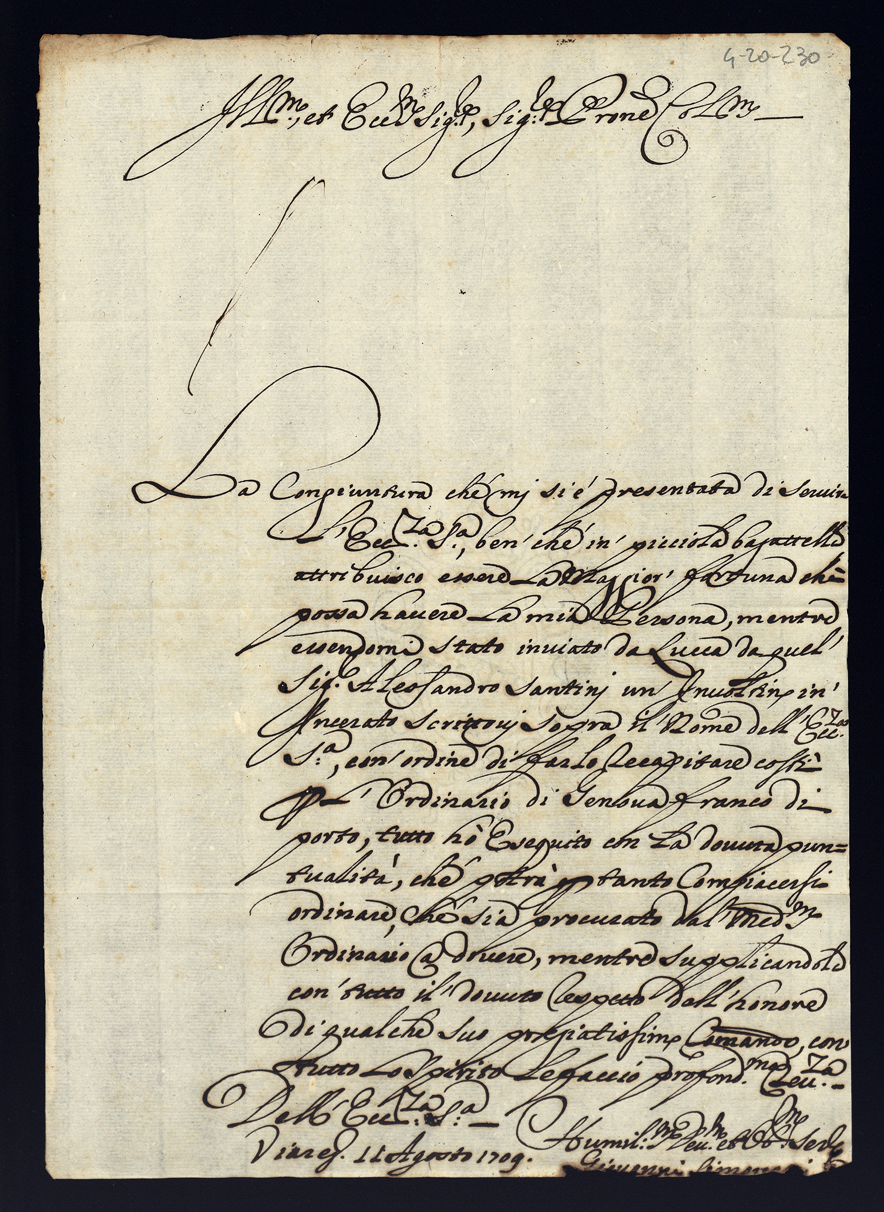 4-20-230
Ill.mo, et Ecc.mo Sig.re, Sig.re Prone Col.mo
La Congiuntura che mi si è presentata di servir
l'Ecc.za S.a, ben' che in' picciola bagattella
attribuisco essere La Maggior' fortuna che
possa havere La mia Persona, mentre
essendomi stato inviato da Lucca da quel'
Sig.r Alessandro Santinj un' Involtino in'
Incerato scrittovj sopra il' Nome dell' Ecc.za
S.a, con' ordine di farlo recapitare costì
p L'Ordinario di Genova franco di
porto, tutto hò Eseguito con La dovuta pun=
tualità, che potrà p tanto Compiacersi
ordinare, che sia procurato dal med.mo
Ordinario a dovere, mentre supplicandola
con' tutto il' dovuto respetto dell' honore
di qualche suo pregiatissimo Comando, con
tutto Lo spirito Le faccio profond.ma Rev.za
Dell' Ecc.za S.a
Viareg. 11 Agosto 1709.
Humil.mo Dev.mo et Obb.mo Ser.re
Giovanni